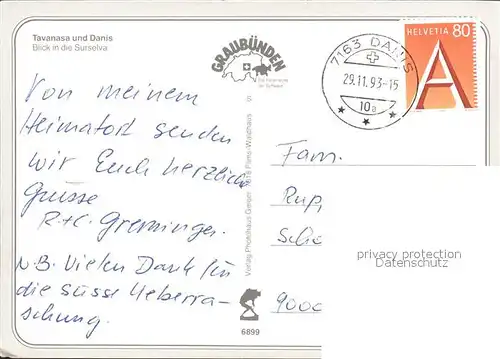 Tavanasa und Danis
Blick in die Surselva
GRAUBÜNDEN
Die Ferienecke
der Schweiz
7163 DANIS
29.11.93-15
10a
HELVETIA 80
A
Von meinem
Heimatort senden
wir Euch herzliche
Grüsse
R+C. Greminger.
N.B. Vielen Dank für
die süsse Ueberra-
schung.
Verlag Photohaus Geiger 7018 Flims-Waldhaus
6899
Fam.
Rupp
Sch
9000
privacy protection
Datenschutz